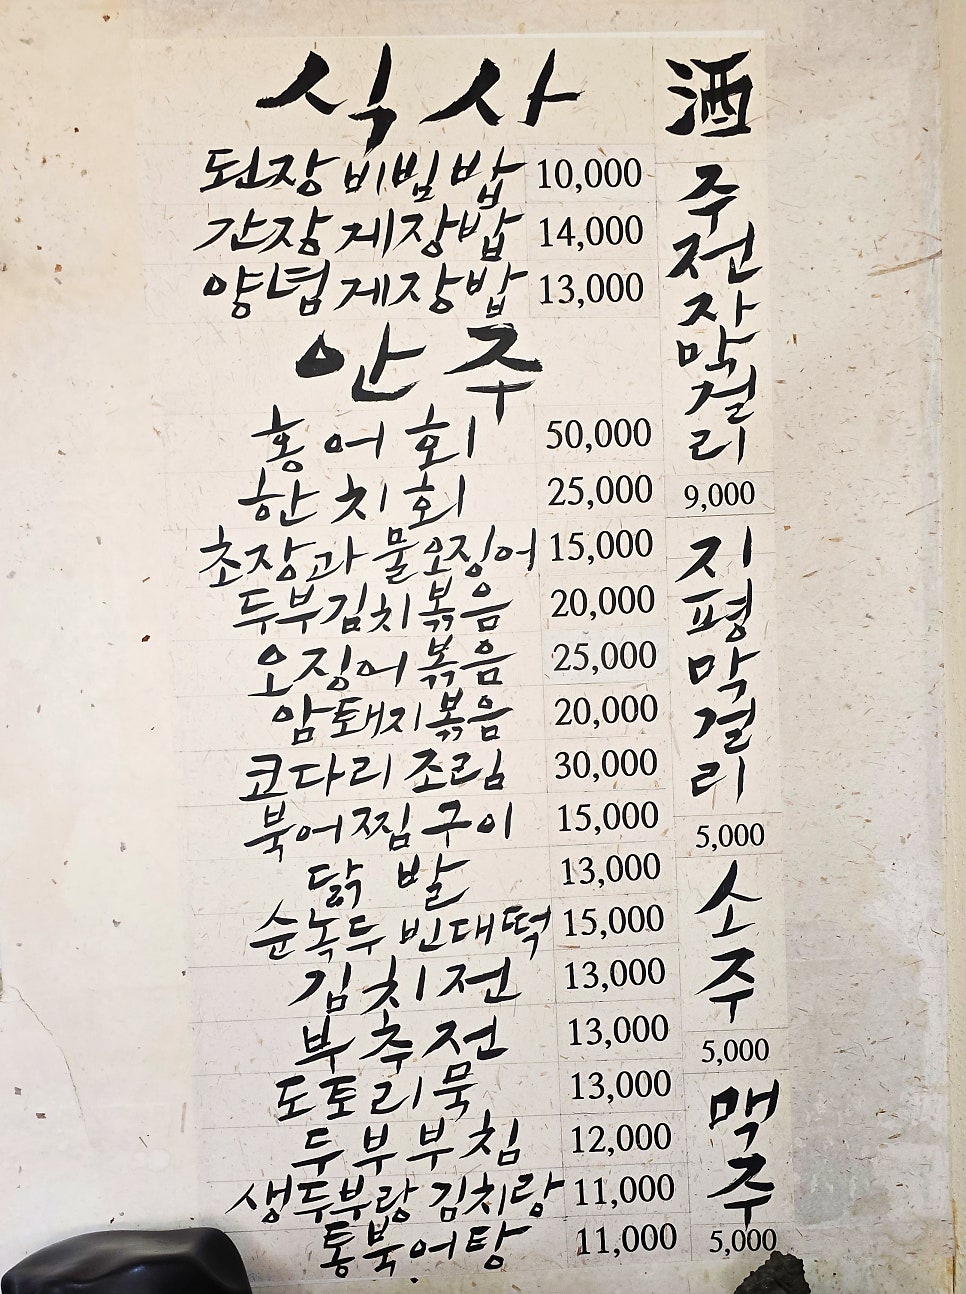 식사
된장비빔밥 10,000
간장게장밥 14,000
양념게장밥 13,000
안주
홍어회 50,000
한치회 25,000
초장과 물오징어 15,000
두부김치볶음 20,000
오징어볶음 25,000
암퇘지볶음 20,000
코다리조림 30,000
북어찜구이 15,000
닭발 13,000
순녹두빈대떡 15,000
김치전 13,000
부추전 13,000
도토리묵 13,000
두부부침 12,000
생두부랑 김치랑 11,000
통북어탕 11,000
酒
주전자막걸리
9,000
지평막걸리
5,000
소주
5,000
맥주
5,000